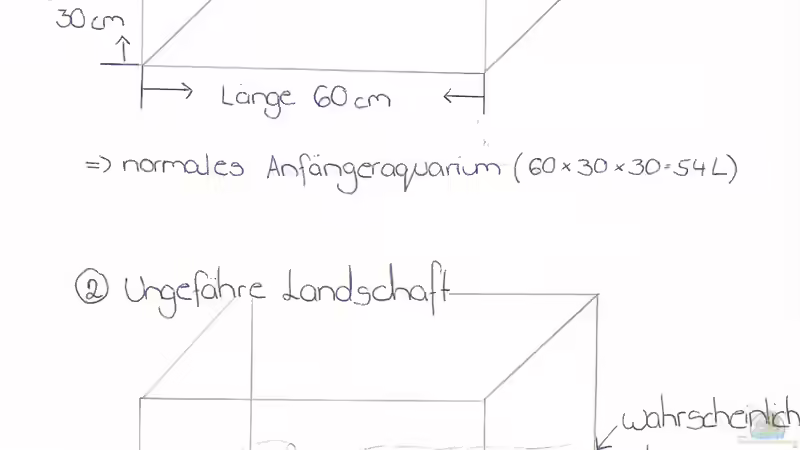 30 cm
Länge 60 cm
=> normales Anfängeraquarium (60 x 30 x 30 = 54 L)
② Ungefähre Landschaft
wahrscheinlich